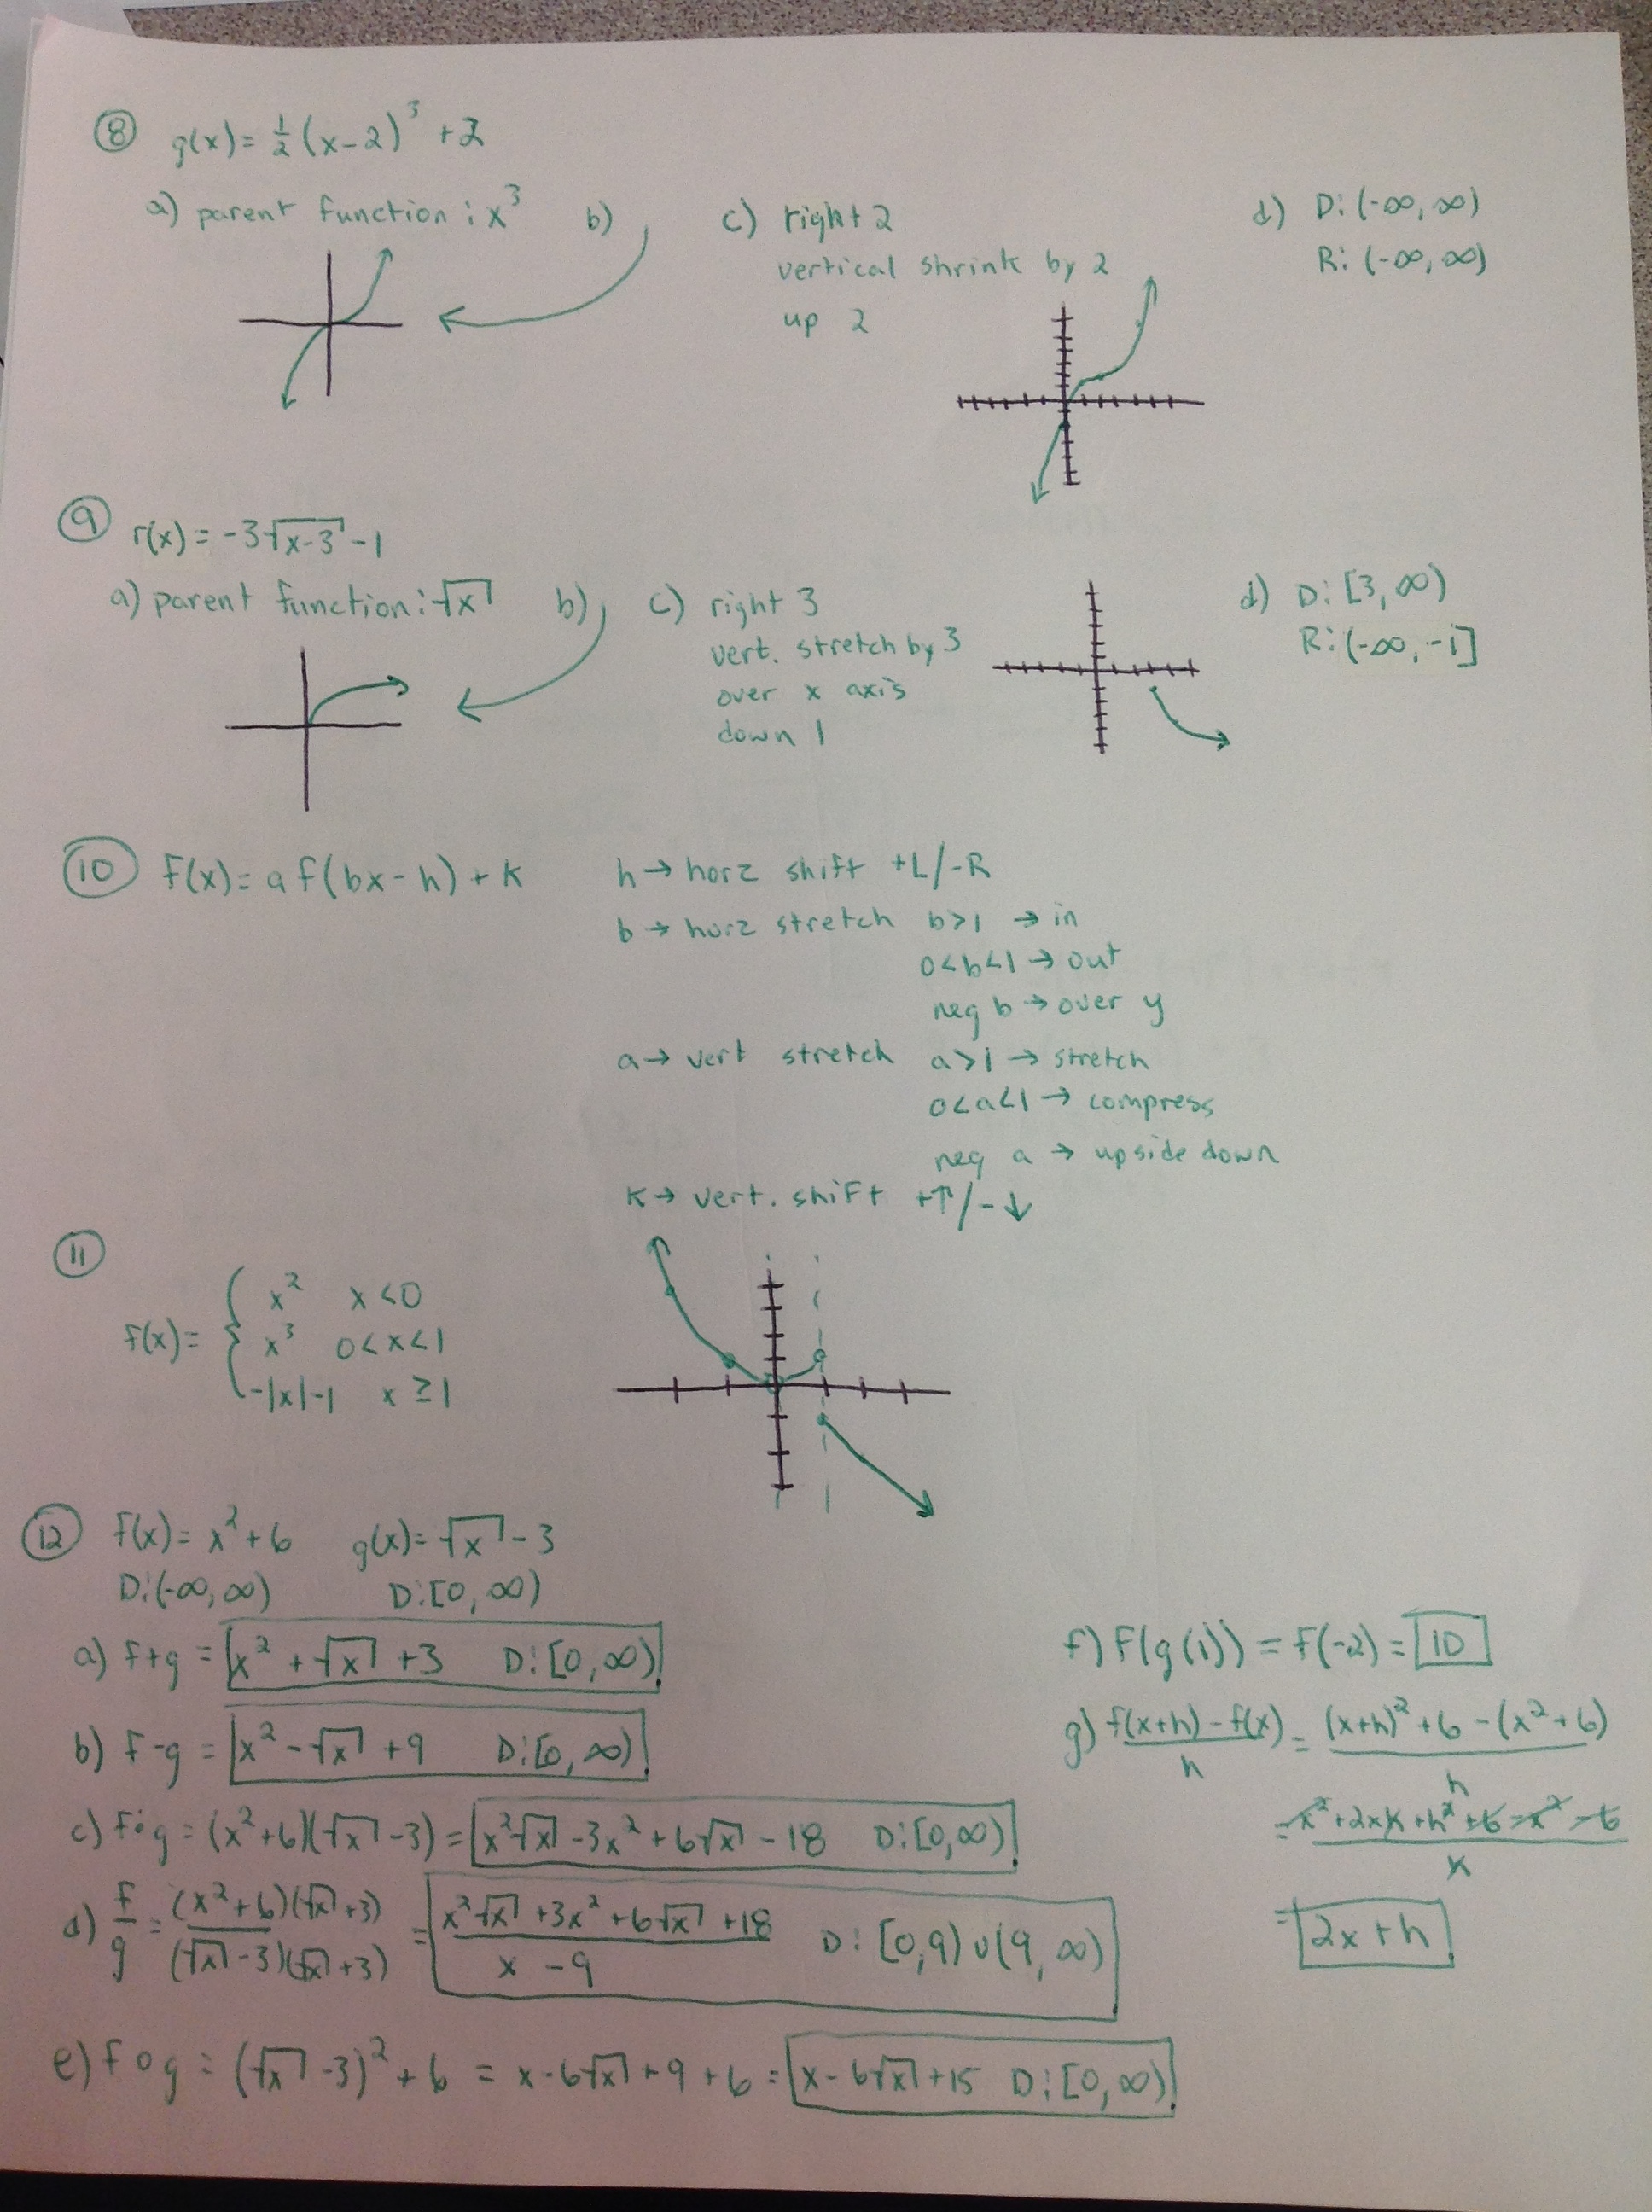 ⑧ g(x) = 1/2 (x-2)³ + 2
a) parent function : x³ b) c) right 2 d) D: (-∞, ∞)
vertical shrink by 2 R: (-∞, ∞)
up 2
⑨ r(x) = -3√(x-3) -1
a) parent function : √x b) c) right 3 d) D: [3, ∞)
vert. stretch by 3 R: (-∞, -1]
over x axis
down 1
⑩ f(x) = a f(bx - h) + k h → horz shift +L/-R
b → horz stretch b>1 → in
0<b<1 → out
neg b → over y
a → vert stretch a>1 → stretch
0<a<1 → compress
neg a → upside down
k → vert. shift +↑/-↓
⑪
f(x) = { x² x<0
x³ 0<x<1
-|x|-1 x≥1
⑫ f(x) = x² + 6 g(x) = √x - 3
D: (-∞, ∞) D: [0, ∞)
a) f+g = x² + √x + 3 D: [0, ∞)
b) f-g = x² - √x + 9 D: [0, ∞)
c) f·g = (x²+6)(√x - 3) = x²√x - 3x² + 6√x - 18 D: [0, ∞)
d) f/g = (x²+6)(√x+3) / (√x-3)(√x+3) = x²√x + 3x² + 6√x + 18 / x - 9 D: [0,9) ∪ (9, ∞)
e) f o g = (√x - 3)² + 6 = x - 6√x + 9 + 6 = x - 6√x + 15 D: [0, ∞)
f) f(g(1)) = f(-2) = 10
g) f(x+h) - f(x) / h = (x+h)² + 6 - (x² + 6) / h
= x² + 2xh + h² + 6 - x² - 6 / h
= 2x + h